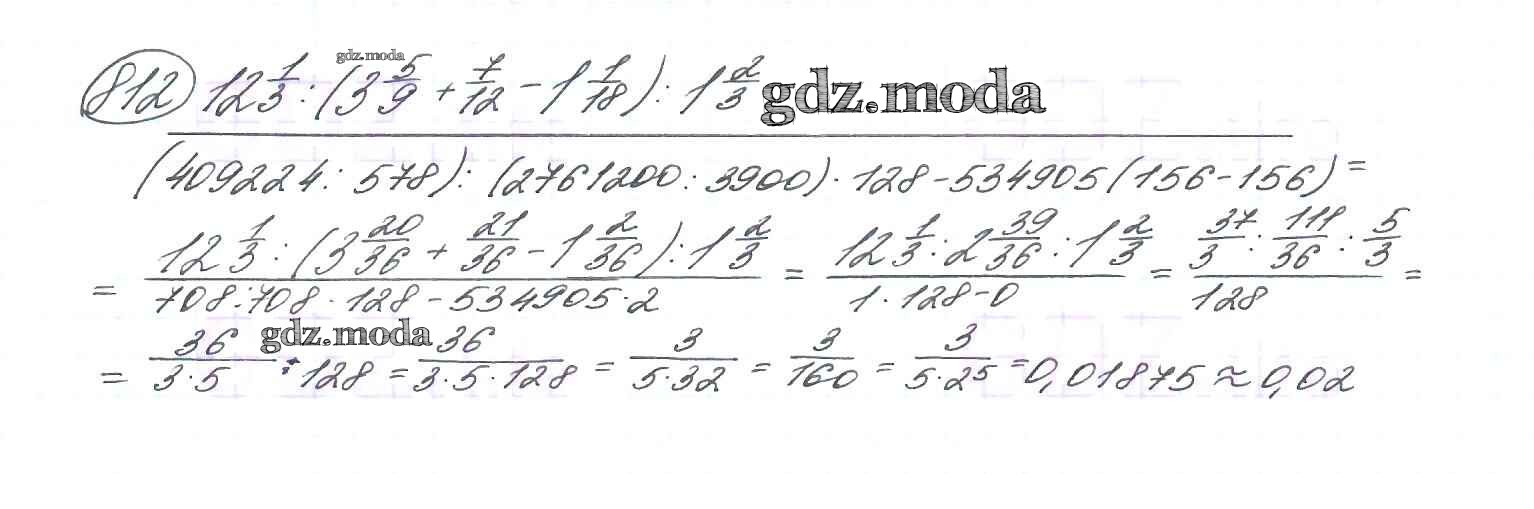 gdz.moda
812) 12 1/3 : (3 5/9 + 7/12 - 1 1/18) : 1 2/3 gdz.moda
(409224 : 578) : (2761200 : 3900) · 128 - 534905 (156 - 156) =
= 12 1/3 : (3 20/36 + 21/36 - 1 2/36) : 1 2/3 / 708 : 708 · 128 - 534905 · 2 = 12 1/3 : 2 39/36 : 1 2/3 / 1 · 128 - 0 = 37/3 : 111/36 : 5/3 / 128 =
= 36 / 3 · 5 : 128 = 36 / 3 · 5 · 128 = 3 / 5 · 32 = 3/160 = 3 / 5 · 2^5 = 0,01875 ≈ 0,02
gdz.moda